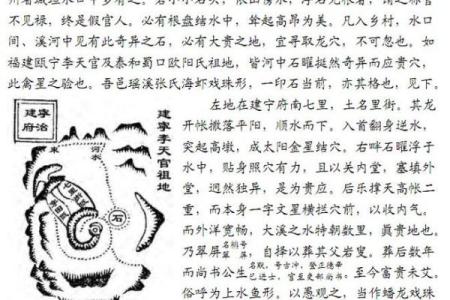 不见禄，终是假官人。必有根盘结水中，耸起高昂为美。凡入乡村，水口
间、溪河中见有此奇异之石，必有大贵之地，宜寻取龙穴，不可忽也。如
福建瓯宁李天官及泰和蜀口欧阳氏祖地，皆河中石曜挺然奇异而应贵穴，
此禽星之验也。吾邑瑶溪张氏海虾戏珠形，一印石当前，亦其格也，见下。
建宁府治
建宁李天官祖地
河水
石
左地在建宁府南七里，土名里街。其龙
开帐撒落平阳，顺水而下。入首翻身逆水，
突起高墩，成太阳金星结穴。右畔石曜浮于
水中，贴身照穴有力，且以关内堂，塞填外
堂，迥然独异，是为贵应。后乐撑天高帐二
重，而本身一字文星横拦穴前，以收内气。
而外洋宽畅，大溪之水特朝数里，真贵地也。
乃翠屏名桐号翠屏自择以葬其父岩叟。葬后数年
而尚书公生名默，号古冲，登正德辛巳进士，官至吏部尚书至今富贵未艾。
俗呼为上水鱼形。以愚观之，当作蟠龙戏珠